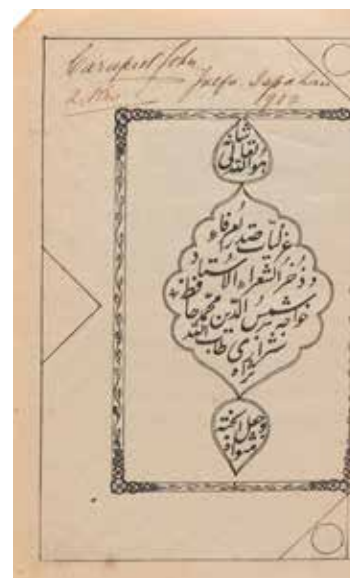 Carapiet John
Julfa. Ispahan
هو الله تعالی شانه
غزلیات صدر العرفاء
و ذخر الشعراء الاستاد
خواجه شمس الدین محمد حافظ
شیرازی طاب الله
ثراه
و جعل الجنة
مثواه